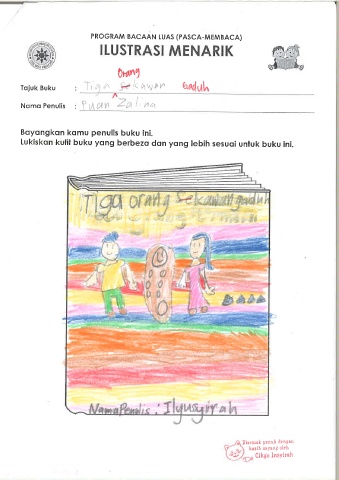 PROGRAM BACAAN LUAS (PASCA-MEMBACA)
ILUSTRASI MENARIK
Orang
Tajuk Buku : Tiga Sekawan Gaduh
Nama Penulis : Puan Zalina
Bayangkan kamu penulis buku ini.
Lukiskan kulit buku yang berbeza dan yang lebih sesuai untuk buku ini.
Tiga orang sekawan gaduh
Nama Penulis : Ilyusyirah
Disemak penuh dengan
kasih sayang oleh
Cikgu Insyirah